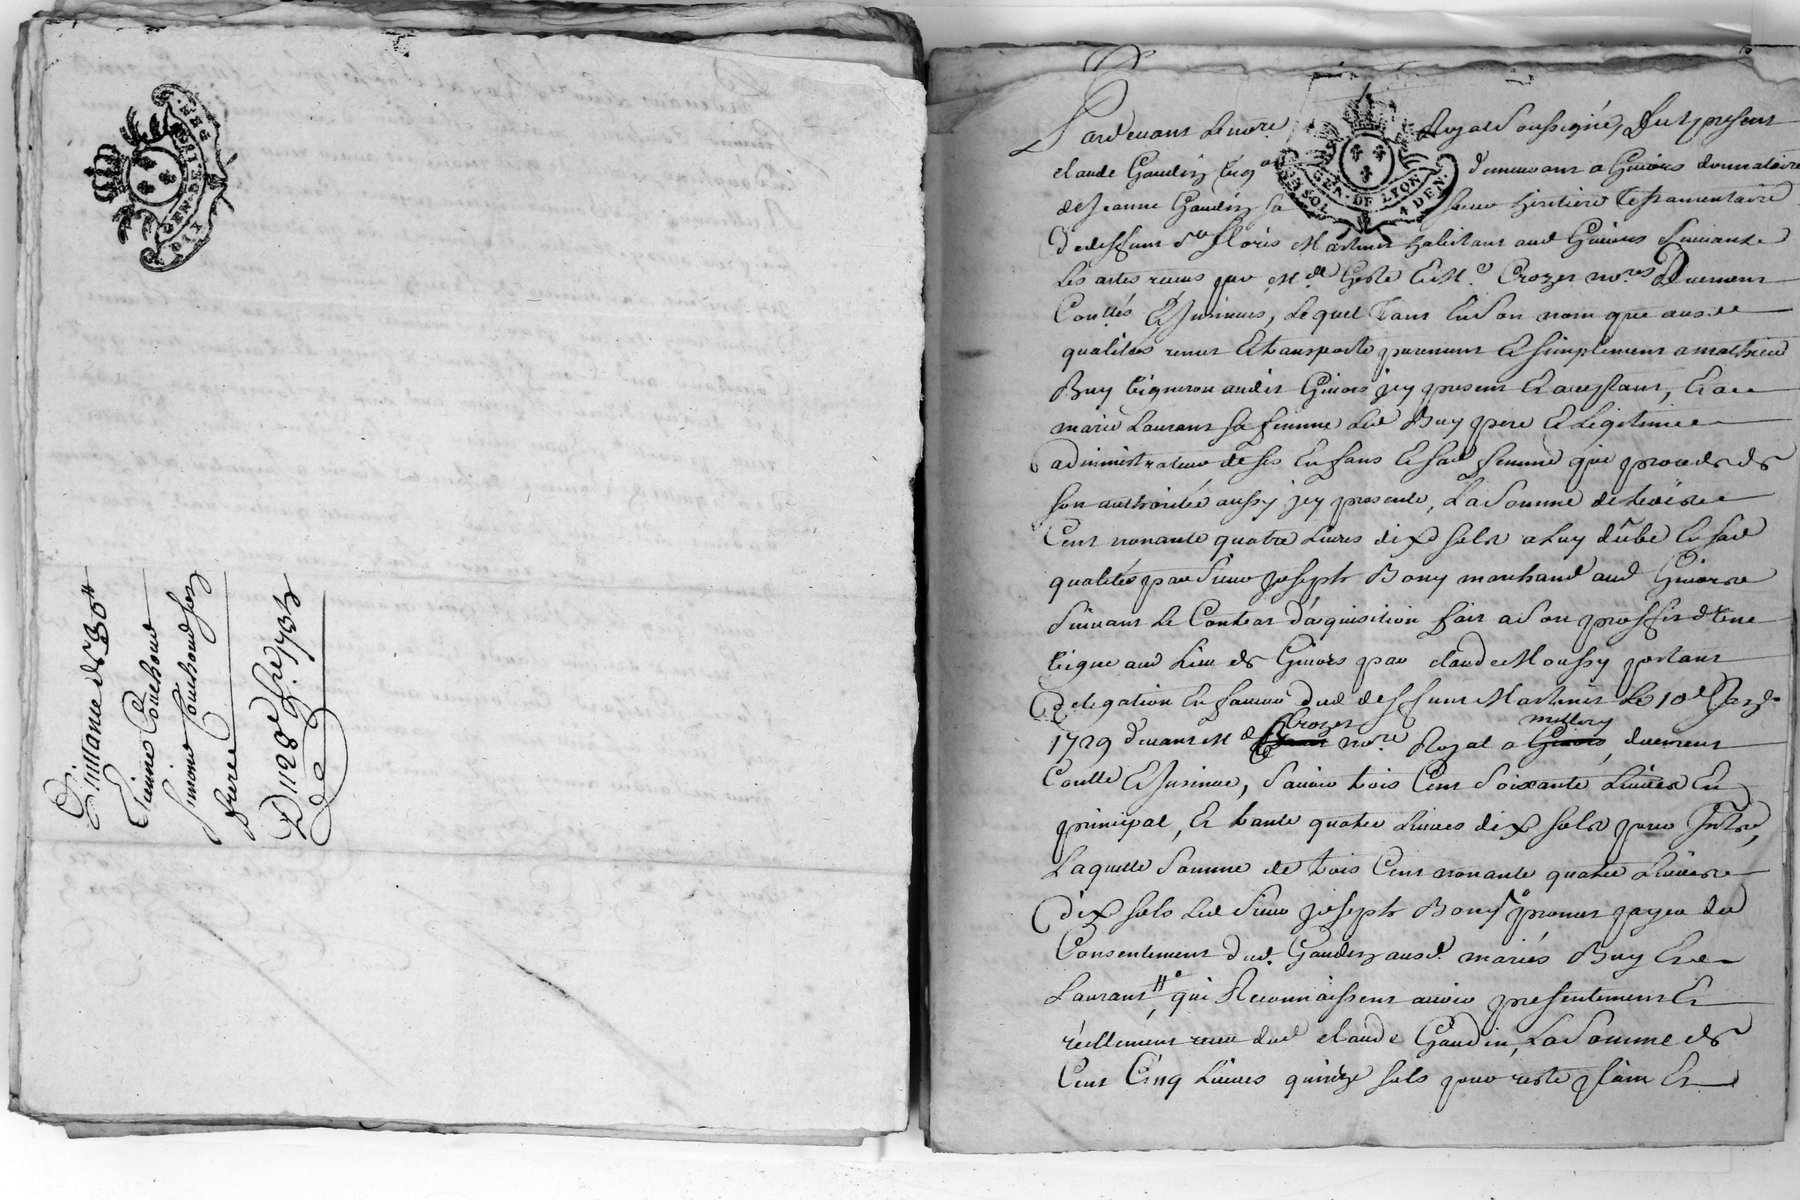 DIX DEN. DE
Quittance de 30#
Pierre Couchoud
Simone Couchoud ses
frere
Du 28e
1732
GEN. DE LYON
UN SOL 4 DEN.
Pardevant le no.re Royal soussigné, fut present
claude Gaudin vig.on demeurant a Givors donnataire
de Jeanne Gaudin sa soeur heritiere testamentaire
de deffunt s.r Floris Martinet habitant aud Givors suivant
les actes recus par M.e Geste et M.e Crozet no.res Duement
Con.llés et Jnsinués, lequel tant en son nom que ausd
qualités remet et transporte purement et simplement a mathieu
Buy vigneron audit Givors jcy present et acceptant, et a
marie Laurant sa femme led Buy pere et Legitime
administrateur de ses enfans et sad femme qui procede de
son authorité aussy jcy presente, La Somme de trois
Cent nonante quatre Livres dix sols a Luy dube en sad
qualités par Sieur Joseph Bony marchand aud Givors
Suivant le Contrat d'acquisition fait a son proffit d'une
vigne au Lieu de Givors par claude Moussy portant
Delegation en faveur dud deffunt Martinet Le 10e
1729 devant M.e Crozet no.re Royal a millery Givors, duement
Conllé et Jnsinué, Sauoir trois Cent Soixante Livres En
principal, et trante quatre Livres dix sols pour
Laquelle Somme de trois Cent nonante quatre Livres
dix sols led Sieur Joseph Bony promet payer du
Consentement dud. Gaudin ausd. mariés Buy et
Laurant, qui Reconnoissent avoir presentement et
réellement receu dud claude Gaudin, La Somme de
Cent Cinq Livres quinze sols pour reste plain et